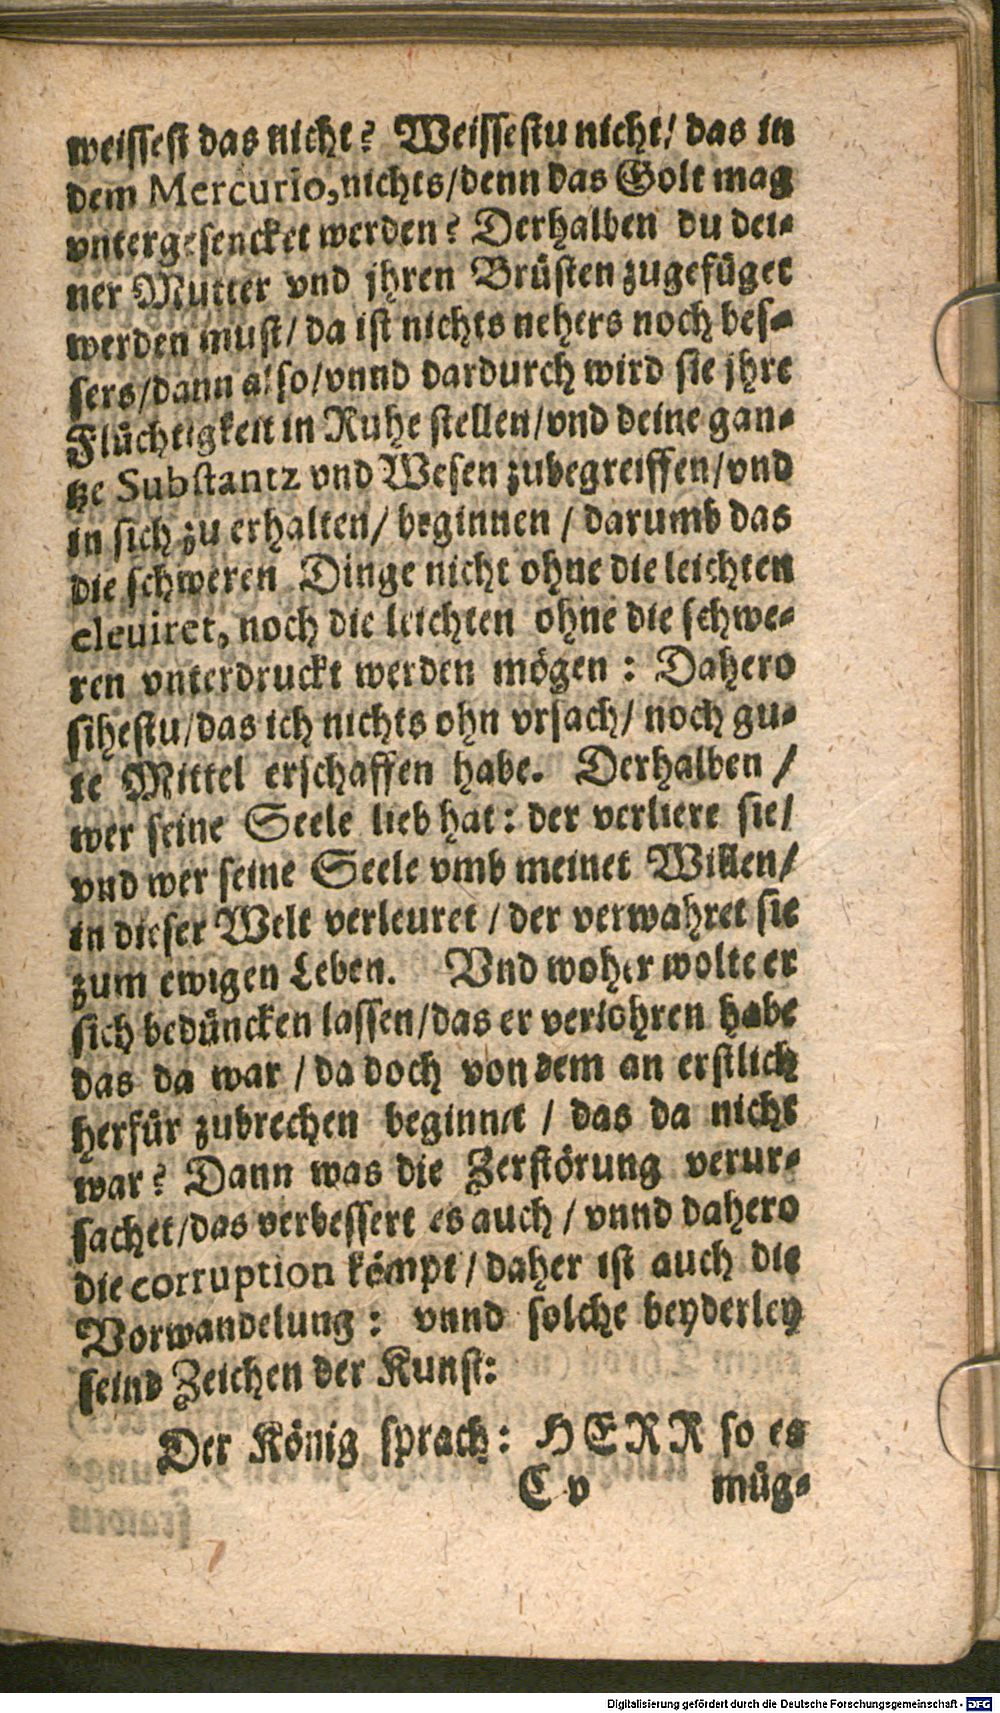 weissest das nicht? Weissestu nicht/ das in
dem Mercurio, nichts/denn das Golt mag
vntergesencket werden? Derhalben du dei-
ner Mutter vnd jhren Brüsten zugefüget
werden must/ da ist nichts nehers noch bes-
sers/dann also/vnnd dardurch wird sie jhre
Flüchtigkeit in Ruhe stellen/vnd deine gan-
tze Substantz vnd Wesen zubegreiffen/vnd
in sich zu erhalten/ beginnen / darumb das
die schweren Dinge nicht ohne die leichten
eleuiret, noch die leichten ohne die schwe-
ren vnterdruckt werden mögen : Dahero
sihestu/das ich nichts ohn vrsach/ noch gu-
te Mittel erschaffen habe. Derhalben /
wer seine Seele lieb hat : der verliere sie/
vnd wer seine Seele vmb meinet Willen/
in dieser Welt verleuret / der verwahret sie
zum ewigen Leben. Vnd woher wolte er
sich bedüncken lassen/das er verlohren habe
das da war / da doch von dem an erstlich
herfür zubrechen beginnet / das da nicht
war? Dann was die Zerstörung verur-
sachet/das verbessert es auch / vnnd dahero
die corruption kömpt / daher ist auch die
Vorwandelung : vnnd solche beyderley
seind Zeichen der Kunst:
Der König sprach : HERR so es
C v müg-
Digitalisierung gefördert durch die Deutsche Forschungsgemeinschaft - DFG